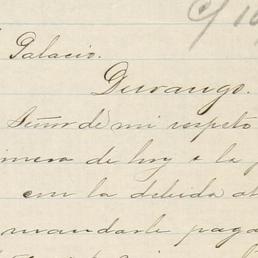 C/ 10
Palacio.
Durango.
Señor de mi respeto
imera de hoy a la p
con la debida at
mandarle paga